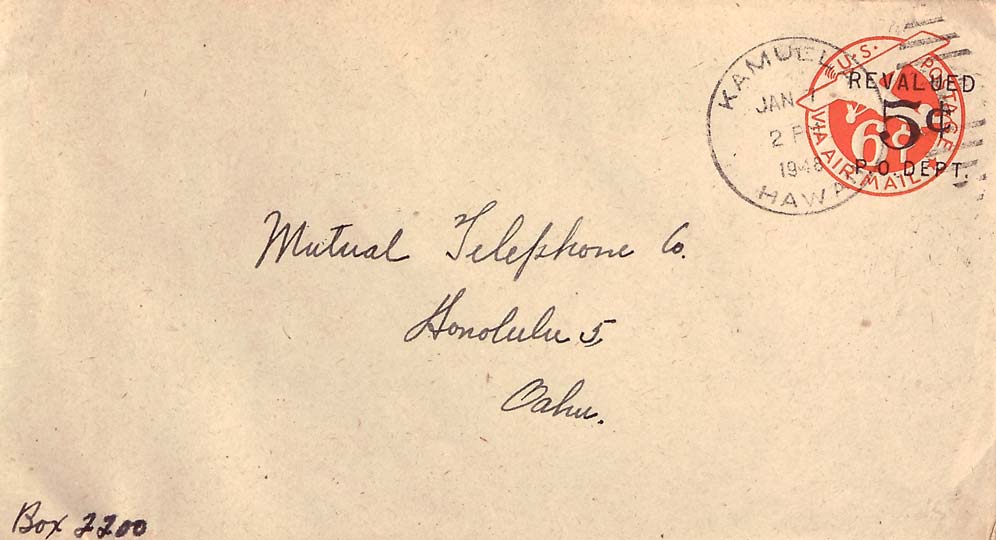 KAMUELA
JAN
2 P
1946
HAWA
U.S. POSTAGE
VIA AIR MAIL
6¢
REVALUED
5¢
P.O. DEPT.
Mutual Telephone Co.
Honolulu 5,
Oahu.
Box 2200